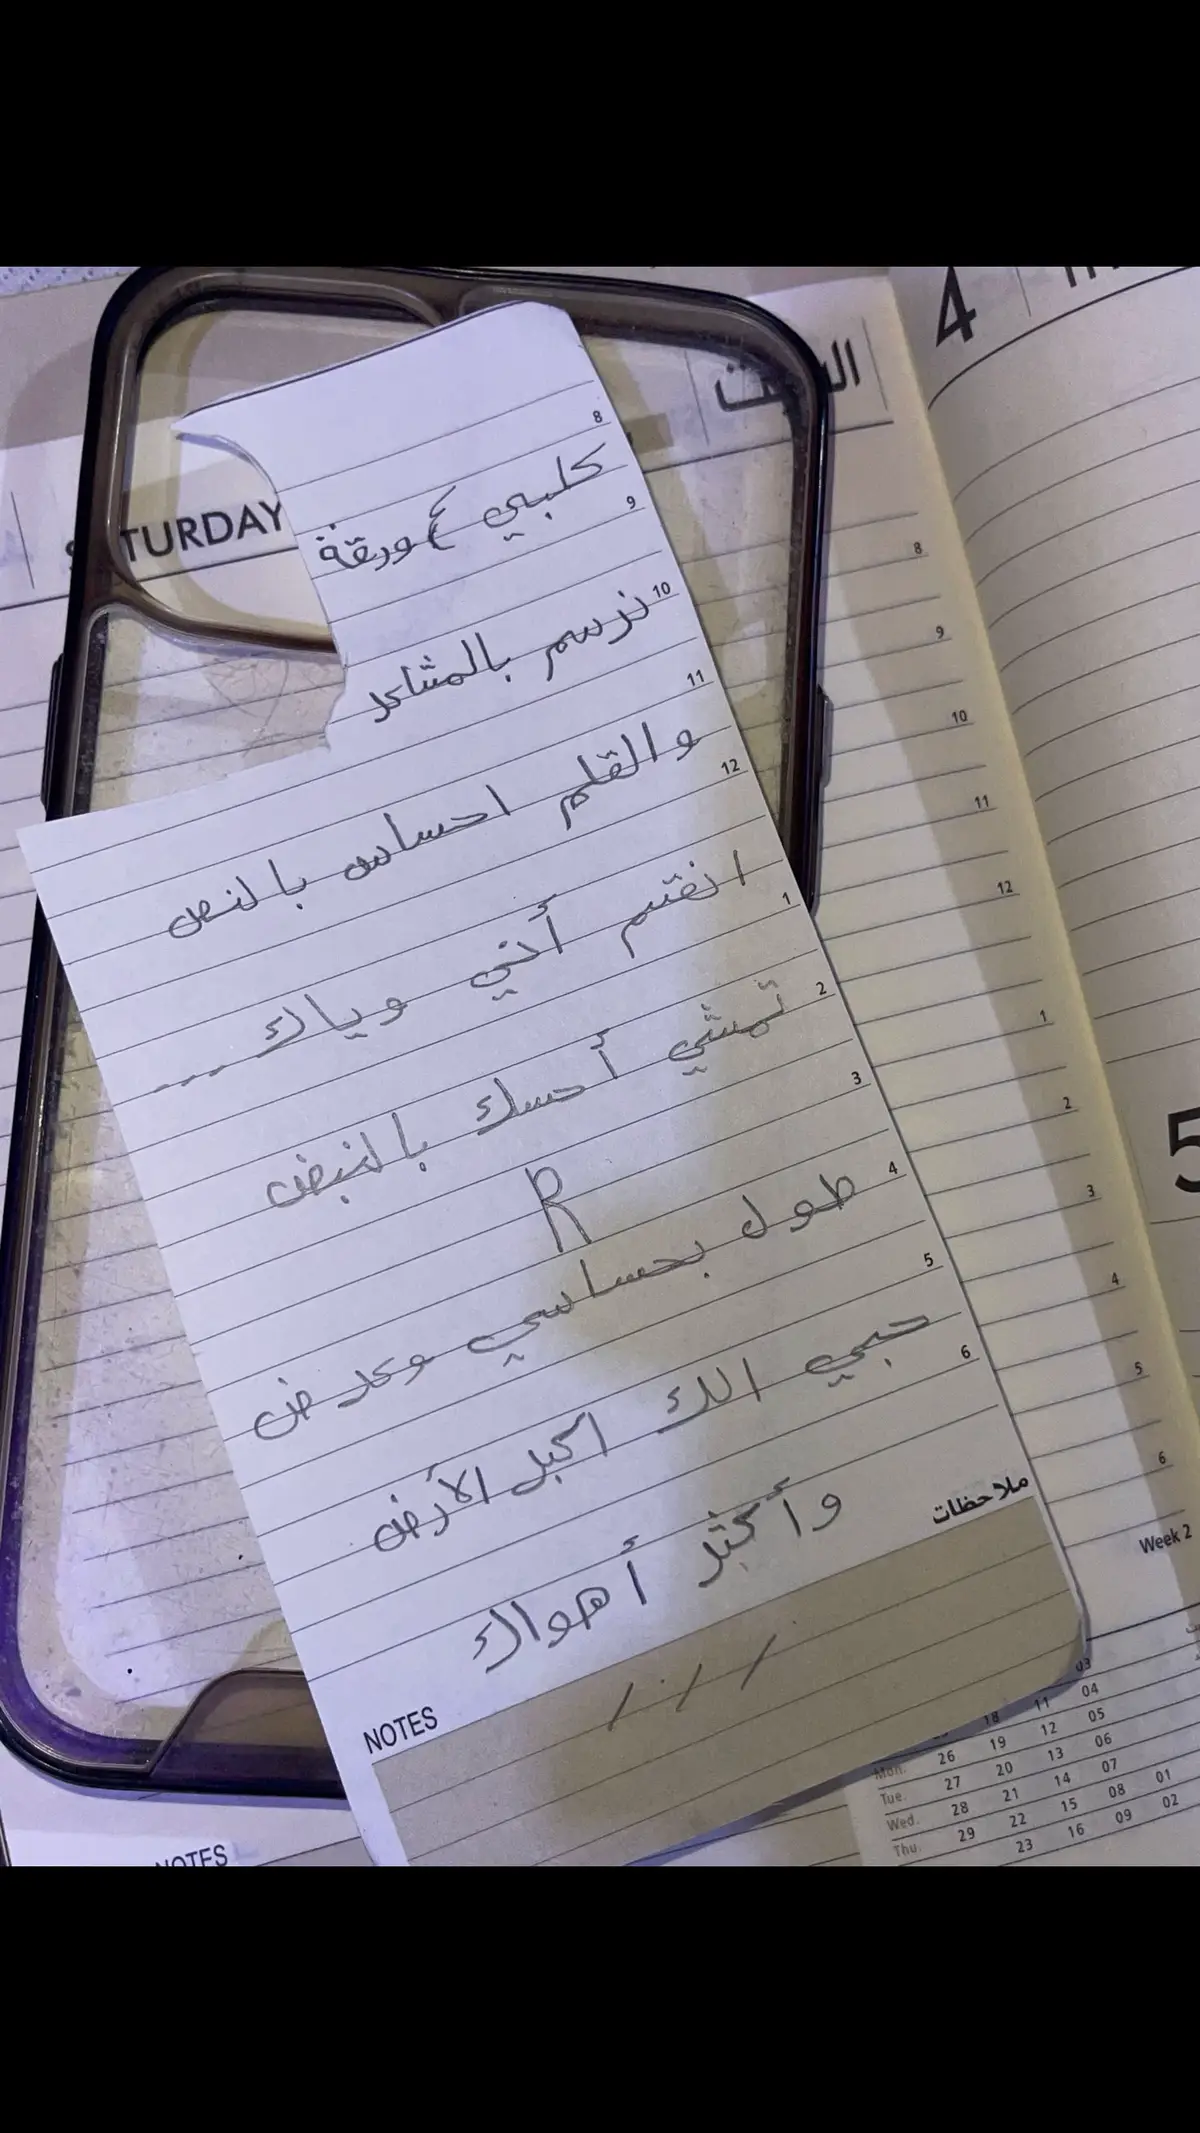 السبت
4
TURDAY
8
كلبي ع ورقة
9
10
نرسم بالمشاعر
11
والقلم احساس بالنص
12
انقسم أني وياك ---
1
تمشي أحسك بالنبض
2
3
R
طول بحساسي وعرض
4
5
حبي الك اكبل الأرض
6
وأكثر أهواك
ملاحظات
NOTES
NOTES
8
9
10
11
12
1
2
3
4
5
6
5
Week 2
03
18 11 04
26 19 12 05
Mon. 27 20 13 06
Tue. 28 21 14 07
Wed. 29 22 15 08 01
Thu. 23 16 09 02